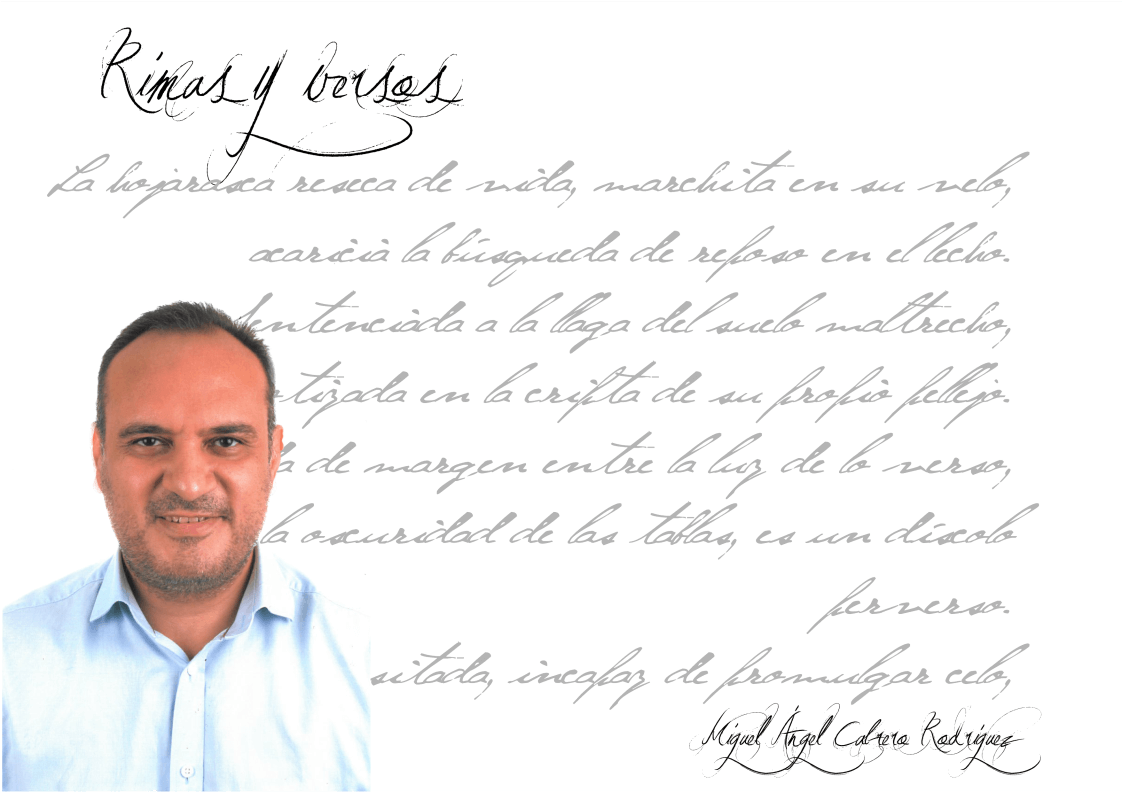 Rimas y bersos
La hojarasca reseca de vida, marchita en su velo,
acaricia la búsqueda de reposo en el lecho.
Sentenciada a la llaga del suelo maltrecho,
tizada en la cripta de su propio pellejo.
de margen entre la luz de lo verso,
la oscuridad de las tablas, es un díscolo
perverso.
sitada, incapaz de promulgar celo,
Miguel Ángel Cabrero Rodríguez